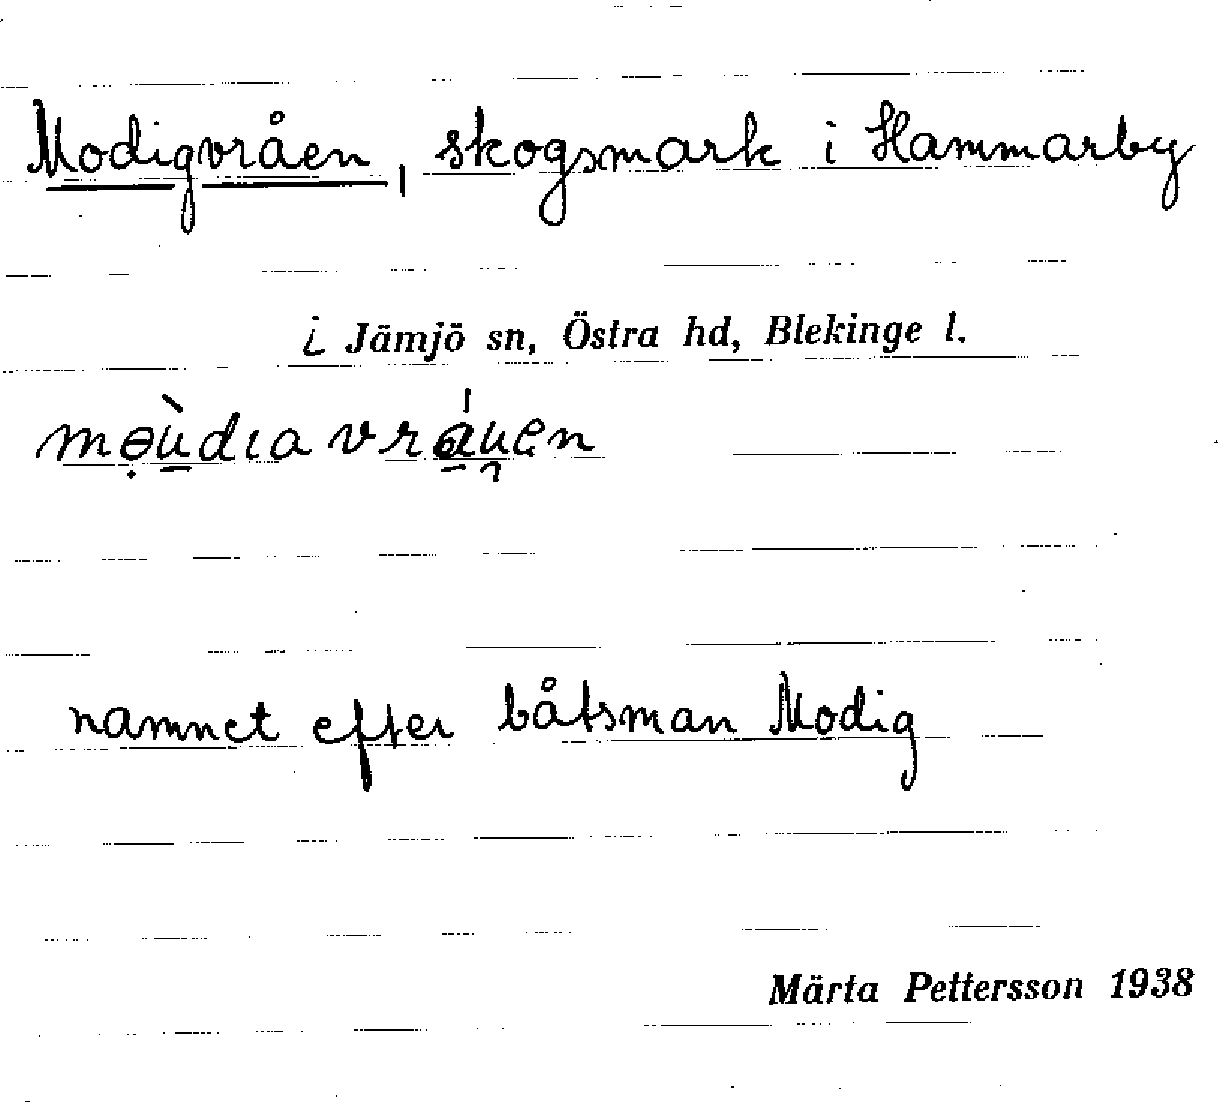 Modigvråen, skogsmark i Hammarby
i Jämjö sn, Östra hd, Blekinge l.
mɵ̣ù̱dıavrá̱u̯en
namnet efter båtsman Modig
Märta Pettersson 1938